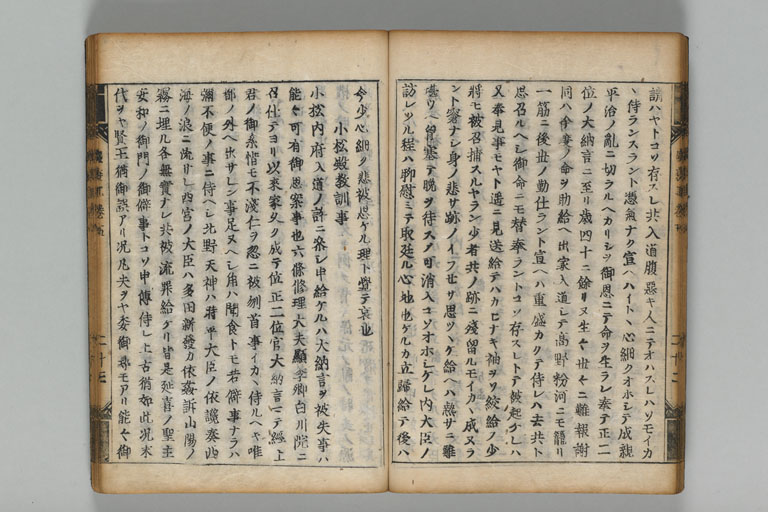 請ハヤトコソ存スレ共入道腹悪キ人ニテオハスレハソモイカ
丶侍ランスラント憑気ナク宣ヘハイトヽ心細クオホシテ成親
平治ノ乱ニ切ラルヘカリシヲ御恩ニテ命ヲ生ラレ奉テ正二
位ノ大納言ニ至リ歳四十ニ餘リヌ生々世々ニ難報謝
同ハ今度ノ命ヲ助給ヘ出家入道シテ高野粉河ニモ籠リ
一筋ニ後世ノ勤仕ラント宣ヘハ重盛カクテ侍レハ去共ト
思召ルヘシ御命ニモ替奉ラントコソ存スレトテ被起ケレハ
又奉見事モヤト遥ニ見送給テハカヒナキ袖ヲソ絞給ノ少
将モ被召捕スルヤラン少者共ノ跡ニ残留ルモイカヽ成ヌラ
ント窮ナレ身ノ悲サ跡ノイフセサ思ツヽケ給ヘハ熱サニ難
晩ヲ待 消入コソオホシケレ内大臣ノ
訪レツル程ハ聊慰ミテ取延ル心地也ケルカ立帰給テ後ハ
今少心細ク悲被思ケル理ト覚テ哀也
小松殿教訓事
小松内府入道ノ許ニ参シ申給ケルハ大納言ヲ被失事ハ
能々可有御思案事也六條修理大夫顕季卿白川院ニ
召仕テヨリ以来家久ク成テ位正二位官大納言ニテ經上
君ノ御糸惜モ不淺仁ヲ忽ニ被刎首事イカヽ侍ルヘキ唯
都ノ外ヘ出サレン事足ヌヘシ角ハ聞食トモ若僻事ナラハ
彌不便ノ事ニ侍ヘシ北野天神ハ時平大臣ノ依讒奏西
海ノ浪ニ流サレ西宮ノ大臣ハ多田新發カ依姦訴山陽ノ
霧ニ埋ル各無實ナレ共被流罪給ケリ皆是延喜ノ聖主
安和ノ御門ノ御僻事トコソ申傳侍レ上古猶如此況末
代ヲヤ賢王猶御誤アリ況凡夫ヲヤ委御尋モアリ能々御